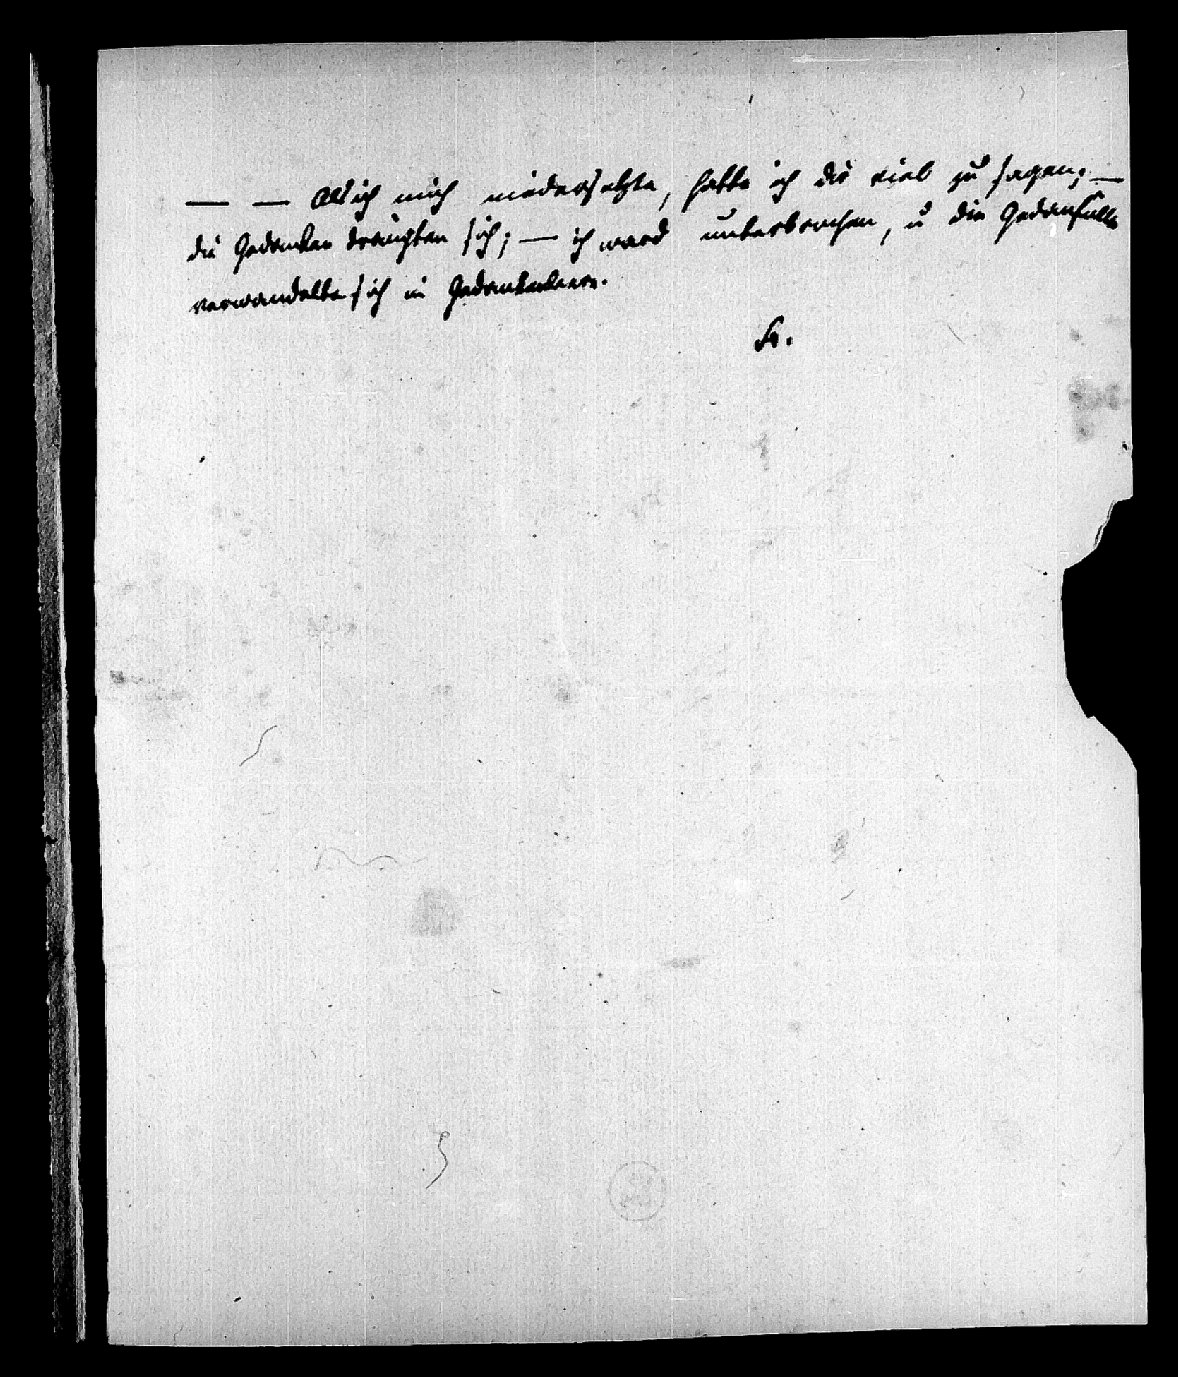 — — Als ich mich niedersetzte, hatte ich dir viel zu sagen; —
die Gedanken drängten sich; — ich ward unterbrochen, u die Gedankfülle
verwandelte sich in Gedankenleere.
Fr.